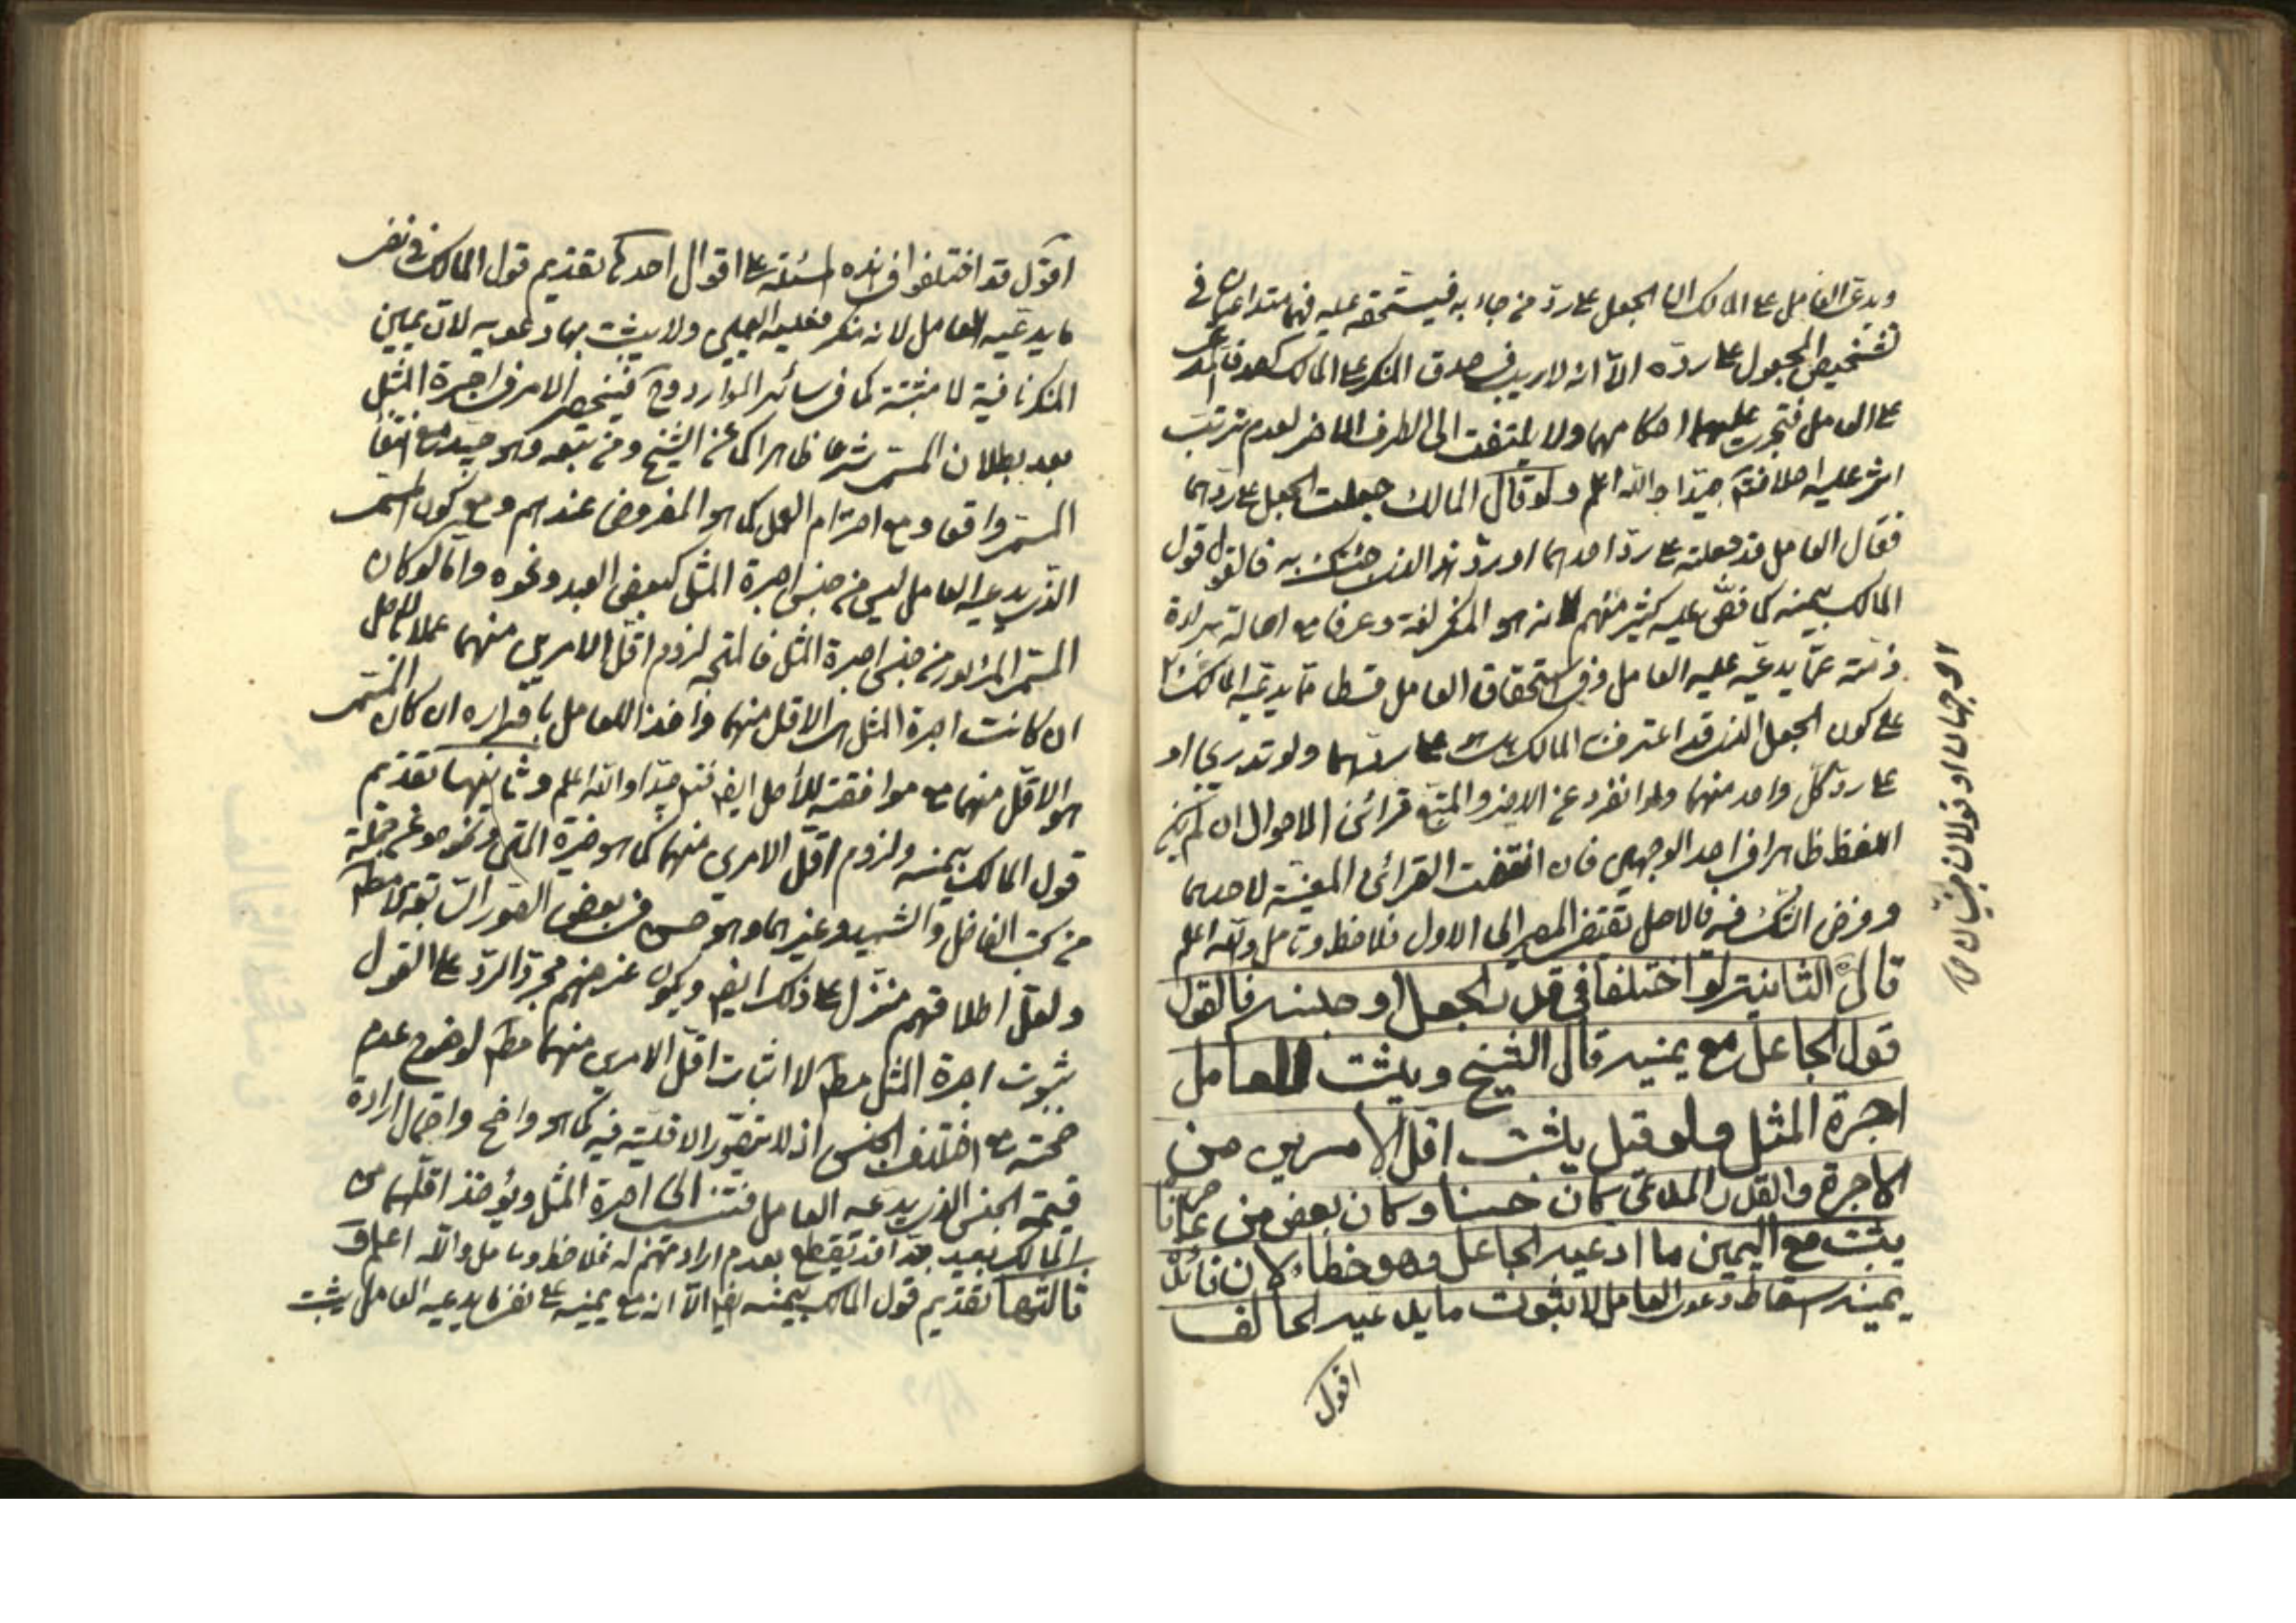 ويدعي العامل على المالك ان الجعل على رد من جاء به فيستحقه عليه فهما متداعيان في
تشخيص المجعول على رده الا انه لا ريب في صدق المنكر على المالك كصدق
على العامل فتجرى عليهما احكامهما ولا يلتفت الى الطرف الاخر لعدم ترتب
اثر عليه اصلا فتدبر جيدا والله اعلم ولو قال المالك جعلت الجعل على ردهما
فقال العامل قد جعلته على رد احدهما او رد هذا الذي جئتك به فالقول قول
المالك بيمينه كما نص عليه كثير منهم لانه هو المنكر لغة وعرفا مع اصالة براءة
ذمته عما يدعيه عليه العامل وفي استحقاق العامل قسط ما يدعيه المالك
على كون الجعل الذي قد اعترف المالك به هو على ردهما ولو تدريجا او
على رد كل واحد منهما ولو انفرد عن الاخر والمتبع قرائن الاحوال ان لم يكن
اللفظ ظاهرا في احد الوجهين فان انتفت القرائن المعينة لاحدهما
وفرض الشك فيه فالاصل يقتضي المصير الى الاول فلاحظ وتامل والله اعلم
قال الثانية لو اختلفا في قدر الجعل او جنسه فالقول
قول الجاعل مع يمينه قال الشيخ ويثبت للعامل
اجرة المثل ولو قيل يثبت اقل الامرين من
الاجرة والقدر المدعى كان حسنا وكان بعض من عاصرناه
يثبت مع اليمين ما ادعيه الجاعل وهو خطاء لان فائدة
يمينه اسقاط دعوى العامل لا ثبوت ما يدعيه الحالف
اقول
وجهان او قولان مبنيان
اقول قد اختلفوا في هذه المسئلة على اقوال احدها تقديم قول المالك في نفي
ما يدعيه العامل لانه منكر فعليه اليمين ولا يثبت بها دعويه لان يمين
المنكر نافية لا مثبتة كما في سائر الموارد وح فينحصر الامر في اجرة المثل
بعد بطلان المسمى شرعا ظاهرا كما عن الشيخ ومن تبعه وهو جيد مع انتفاء
المسمى واقعا ومع احترام العمل كما هو المفروض عندهم ومع كون المسمى
الذي يدعيه العامل ليس من جنس اجرة المثل كبعض العبد ونحوه واما لو كان
المسمى المزبور من جنس اجرة المثل فالمتجه لزوم اقل الامرين منهما عملا بالاصل
ان كانت اجرة المثل هي الاقل منهما واخذا للعامل باقراره ان كان المسمى
هو الاقل منهما مع موافقته للاصل ايضا فتدبر جيدا والله اعلم وثانيها تقديم
قول المالك بيمينه ولزوم اقل الامرين منهما كما هو خيرة المتن ونحوه عن جملة
من كتب الفاضل والشهيد وغيرهما وهو حسن في بعض الصور السابقة لا مطم
ولعل اطلاقهم منزل على ذلك ايضا ويكون غرضهم مجرد الرد على القول
بثبوت اجرة المثل مطم لا اثبات اقل الامرين منهما مطم لوضوح عدم
صحته مع اختلاف الجنس اذ لا يتصور الاقلية فيه كما هو واضح واحتمال ارادة
قيمة الجنس الذي يدعيه العامل فتنسب الى اجرة المثل ويؤخذ اقلهما من
المالك بعيد جدا قد يقطع بعدم ارادتهم له فلاحظ وتامل والله اعلم و
ثالثها تقديم قول المالك بيمينه ايضا الا انه مع يمينه على نفي ما يدعيه العامل يثبت